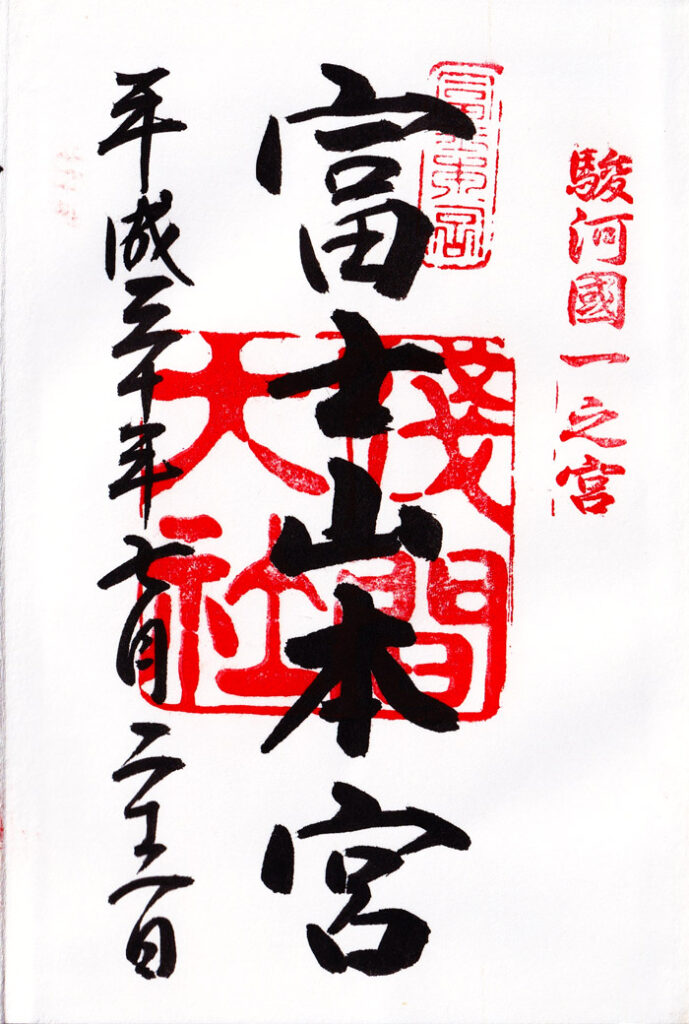 駿河國一之宮
富士山本宮
淺間
大社
平成三十年七月二十二日